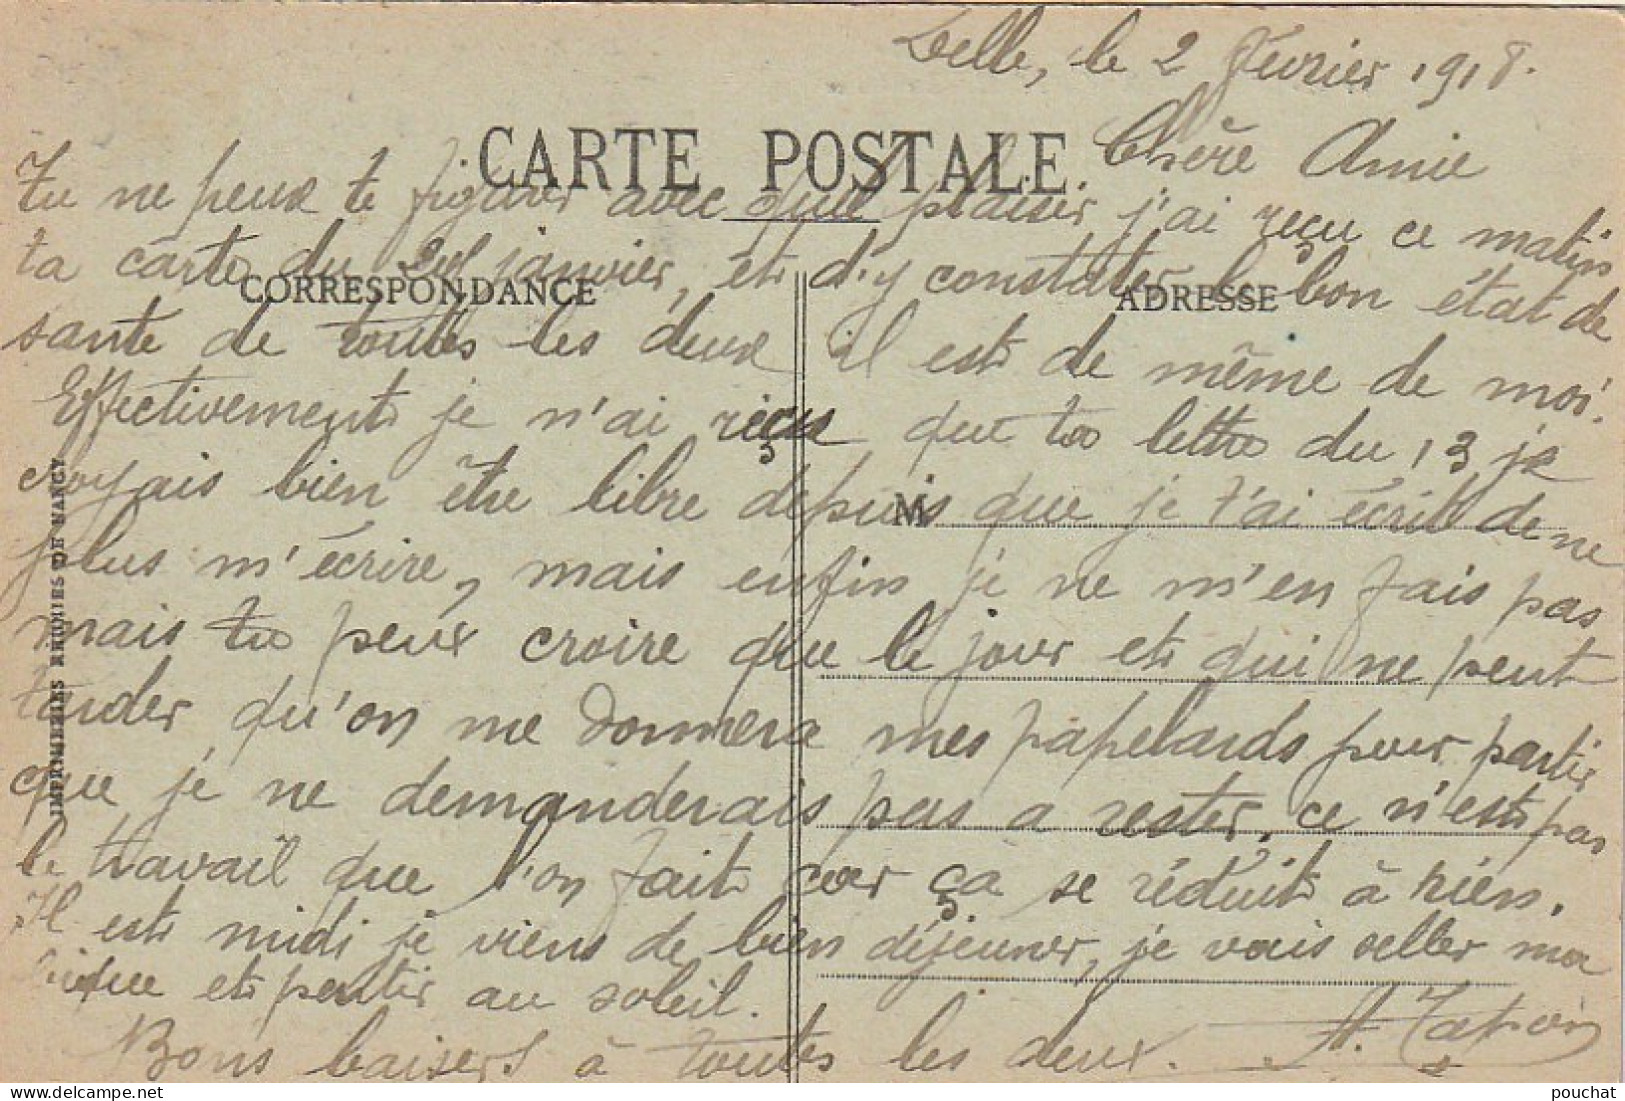 Delle, le 2 Février 1918.
CARTE POSTALE
Chère Amie
Tu ne peux te figurer avec quel plaisir j'ai reçu ce matin
ta carte du janvier, et d'y constater le bon état de
CORRESPONDANCE
ADRESSE
santé de toutes les deux il est de même de moi.
Effectivement je n'ai reçu que ta lettre du 13 je
croyais bien être libre depuis que je t'ai écrit de ne
M
plus m'écrire, mais enfin je ne m'en fais pas
mais tu peux croire que le jour et qui ne peut
tarder qu'on me donnera mes papelards pour partir
que je ne demanderais pas a rester, ce n'est pas
le travail que l'on fait car ça se réduit à rien.
Il est midi je viens de bien déjeuner, je vais seller ma
bique et partir au soleil.
Bons baisers à toutes les deux.
IMPRIMERIES REUNIES DE NANCY
pouchat